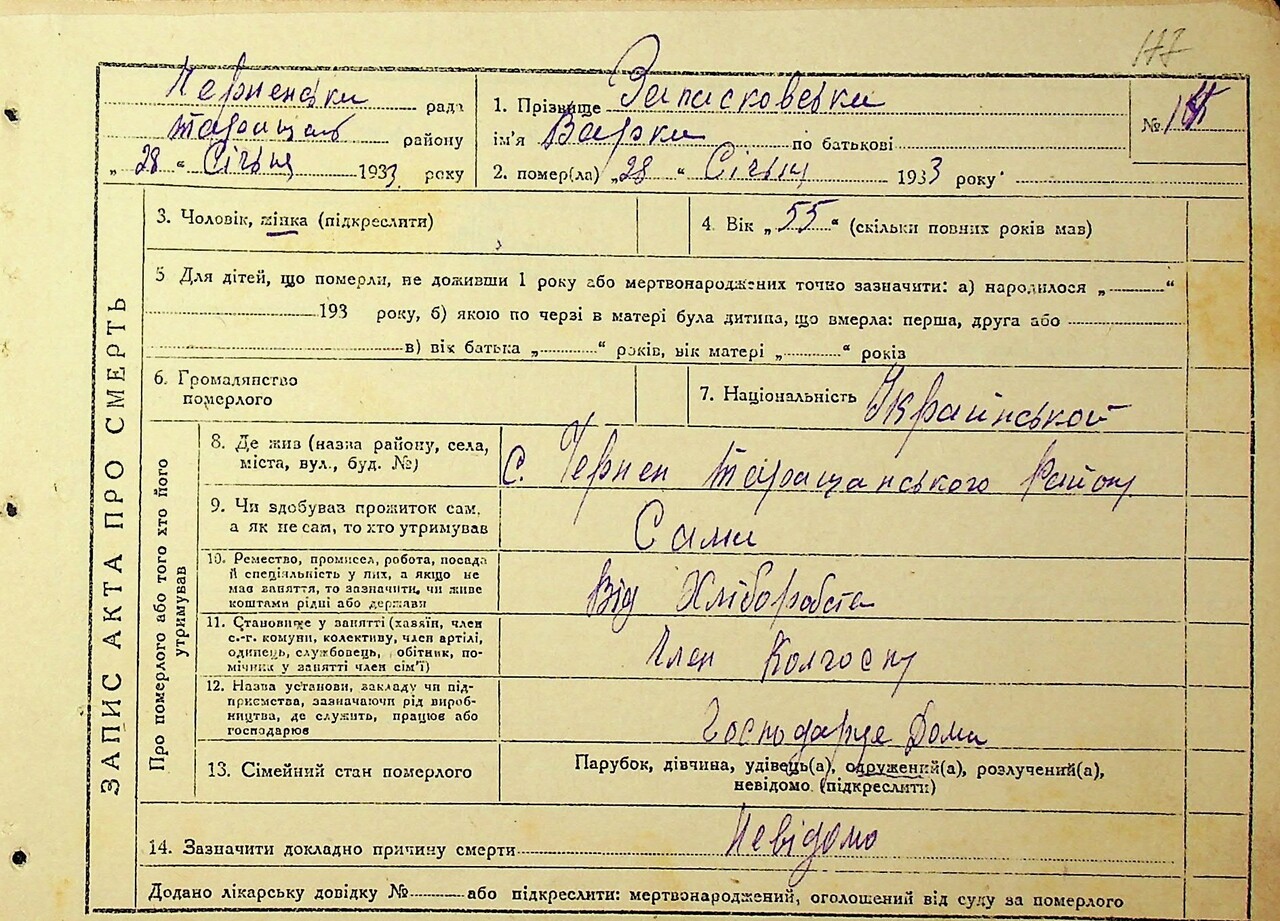 177
Черненська рада
таращан району
„28“ Січня 1933 року
1. Прізвище Запасковська
ім'я Варка по батькові
2. помер(ла) „28“ Січня 1933 року
№
ЗАПИС АКТА ПРО СМЕРТЬ
3. Чоловік, жінка (підкреслити)
4. Вік „55“ (скільки повних років мав)
5 Для дітей, що померли, не доживши 1 року або мертвонароджених точно зазначити: а) народилося „ “
193 року, б) якою по черзі в матері була дитина, що вмерла: перша, друга або
в) вік батька „ “ років, вік матері „ “ років
6. Громадянство
померлого
7. Національність Украінськой
Про померлого або того хто його
утримував
8. Де жив (назва району, села,
міста, вул., буд. №)
С. Чернен Таращанського Району
9. Чи здобував прожиток сам,
а як не сам, то хто утримував
Сама
10. Ремество, промисел, робота, посада
й спеціяльність у них, а якщо не
мав заняття, то зазначити, чи живе
коштами рідні або держави
Від Хліборобста
11. Становище у занятті (хазяїн, член
с.-г. комуни, колективу, член артілі,
одинець, службовець, робітник, по-
мічник у занятті член сім'ї)
Член Колгоспу
12. Назва установи, закладу чи під-
приємства, зазначаючи рід вироб-
ництва, де служить, працює або
господарює
Господарує Дома
13. Сімейний стан померлого
Парубок, дівчина, удівець(а), одружений(а), розлучений(а),
невідомо (підкреслити)
14. Зазначити докладно причину смерти Невідомо
Додано лікарську довідку № або підкреслити: мертвонароджений, оголошений від суду за померлого